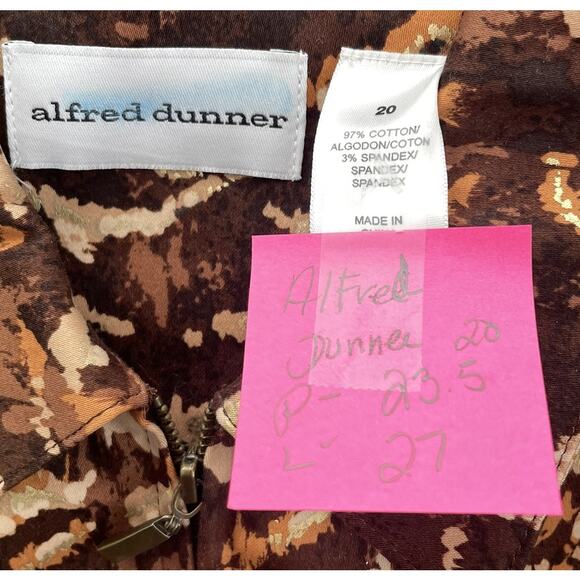 alfred dunner
20
97% COTTON/
ALGODON/COTON
3% SPANDEX/
SPANDEX/
SPANDEX
MADE IN
Alfred
Dunner 20
P- 23.5
L- 27